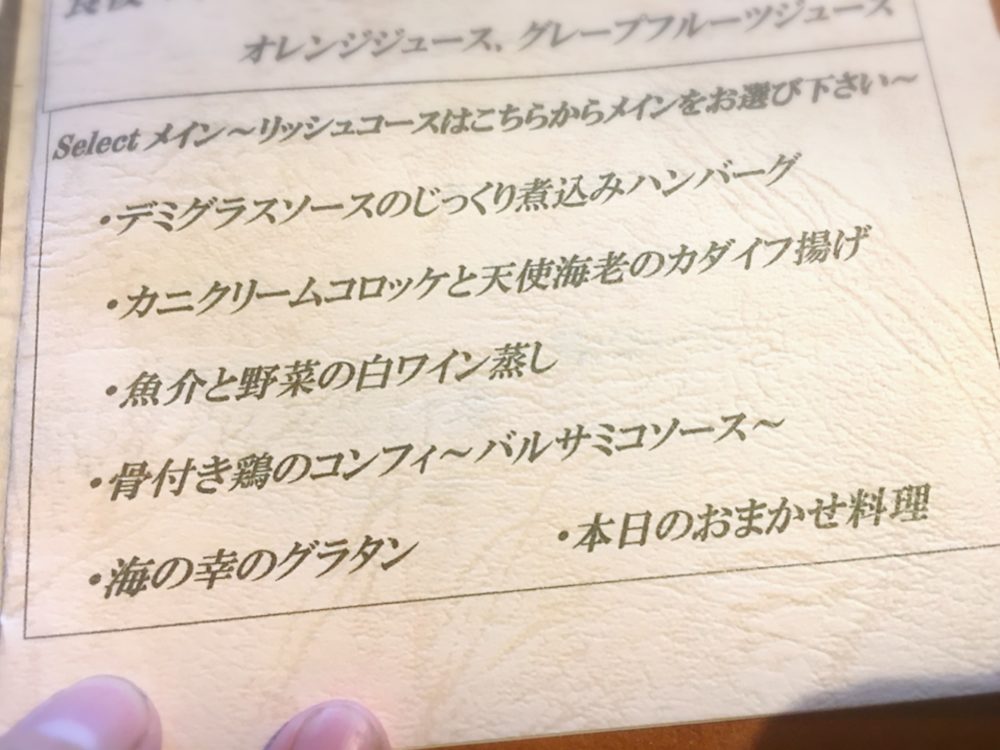 オレンジジュース、グレープフルーツジュース
Select メイン～リッシュコースはこちらからメインをお選び下さい～
・デミグラスソースのじっくり煮込みハンバーグ
・カニクリームコロッケと天使海老のカダイフ揚げ
・魚介と野菜の白ワイン蒸し
・骨付き鶏のコンフィ～バルサミコソース～
・海の幸のグラタン ・本日のおまかせ料理